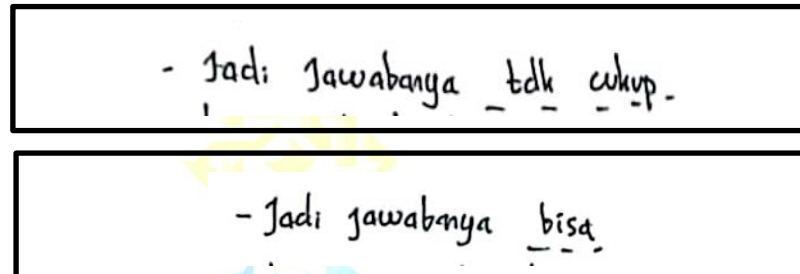 - Jadi Jawabanya tdk cukup.
- Jadi jawabanya bisa